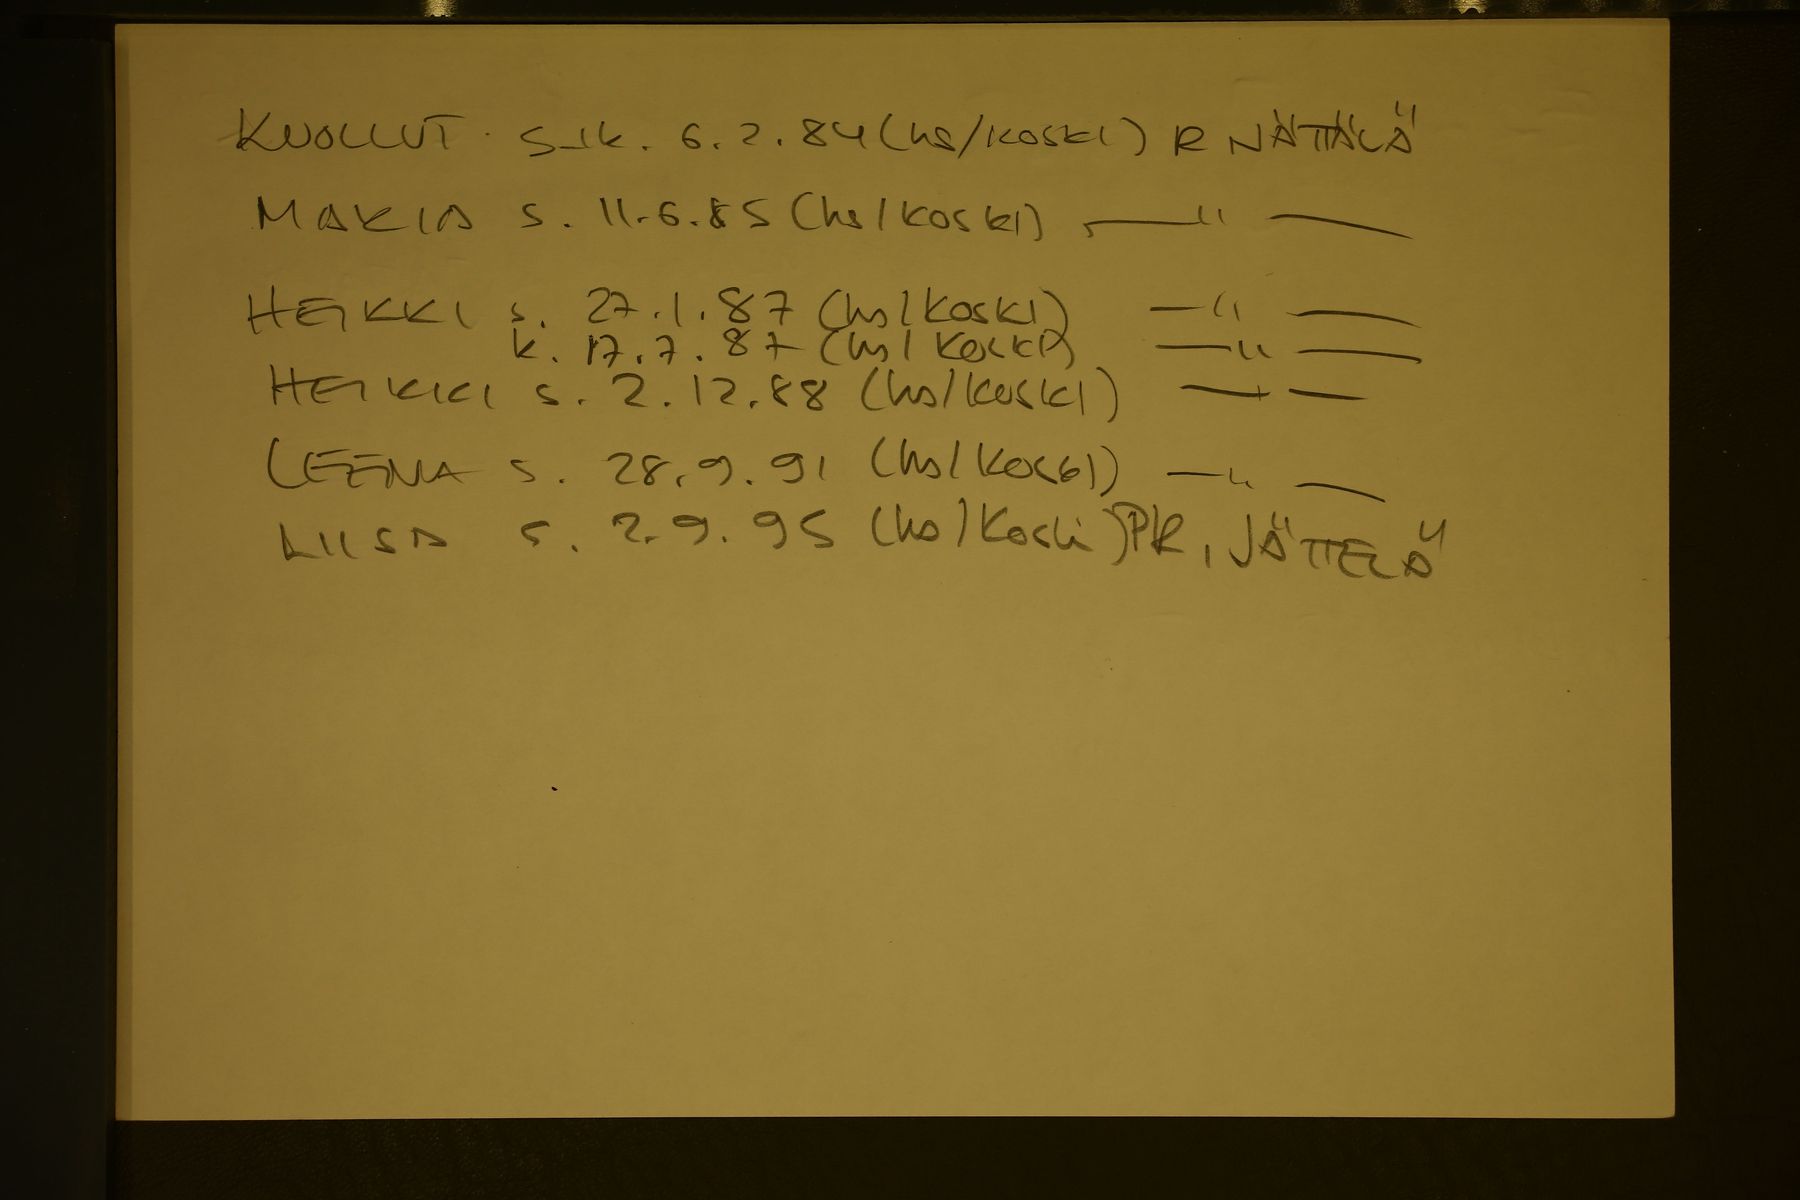 KUOLLUT S-IK. 6.2.84 (hs/KOSKI) R NÄTTÄLÄ
MARIA S. 11.6.85 (hs/KOSKI) —"—
HEIKKI S. 27.1.87 (hs/KOSKI) —"—
k. 17.7.87 (hs/KOSKI) —"—
HEIKKI S. 2.12.88 (hs/KOSKI) —"—
LEENA S. 28.9.91 (hs/KOSKI) —"—
LIISA S. 2.9.95 (hs/Koski) PR, JÄTTELÄ